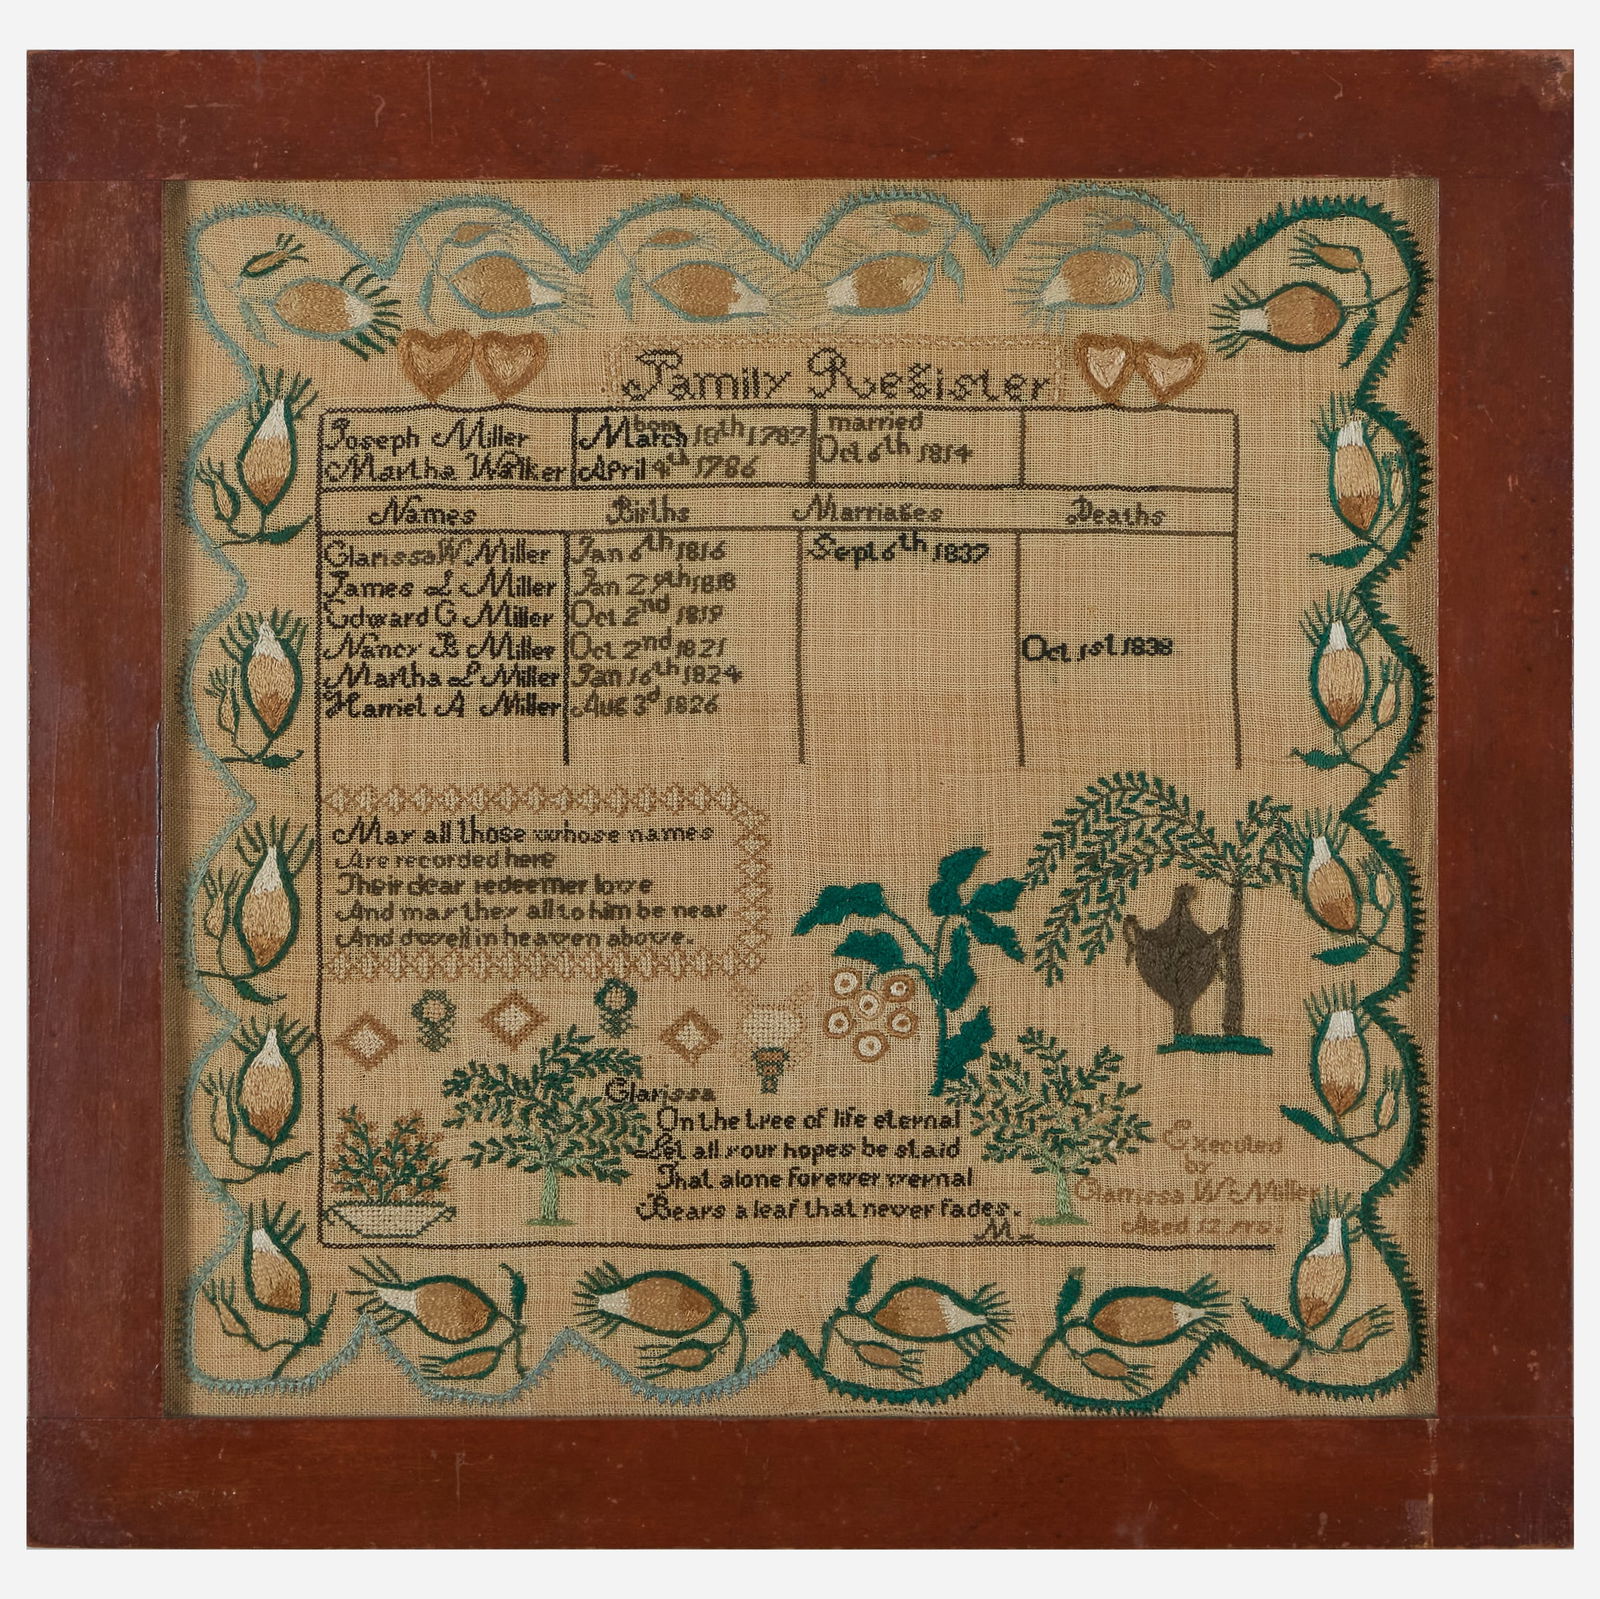 Family Register
Joseph Miller born March 18th 1787 married
Martha Walker April 4th 1786 Oct 6th 1814
Names Births Marriages Deaths
Clarissa W Miller Jan 6th 1816 Sept 6th 1837
James L Miller Jan 29th 1818
Edward G Miller Oct 2nd 1819
Nancy B Miller Oct 2nd 1821 Oct 1st 1838
Martha L Miller Jan 16th 1824
Harriet A Miller Aug 3d 1826
May all those whose names
Are recorded here
Their dear redeemer love
And may they all to him be near
And dwell in heaven above.
Clarissa
On the tree of life eternal
Let all your hopes be staid
That alone forever vernal
Bears a leaf that never fades.
M
Executed
by
Clarrissa W. Miller
Aged 12 yrs.